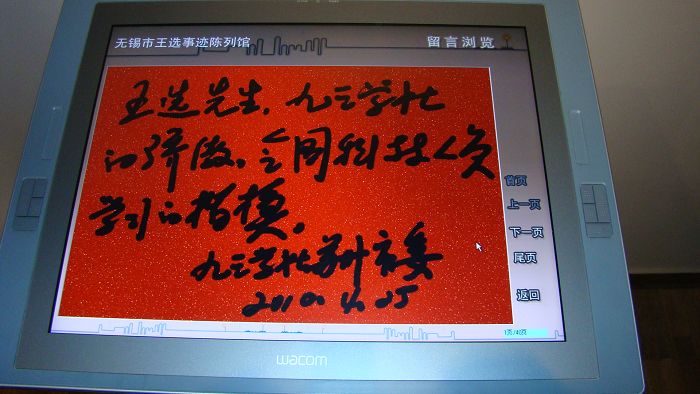 无锡市王选事迹陈列馆
留言浏览
王选先生,九三学社
的骄傲,全国科技人员
学习的楷模。
九三学社苏州市委
2010.4.25
首页
上一页
下一页
尾页
返回
wacom